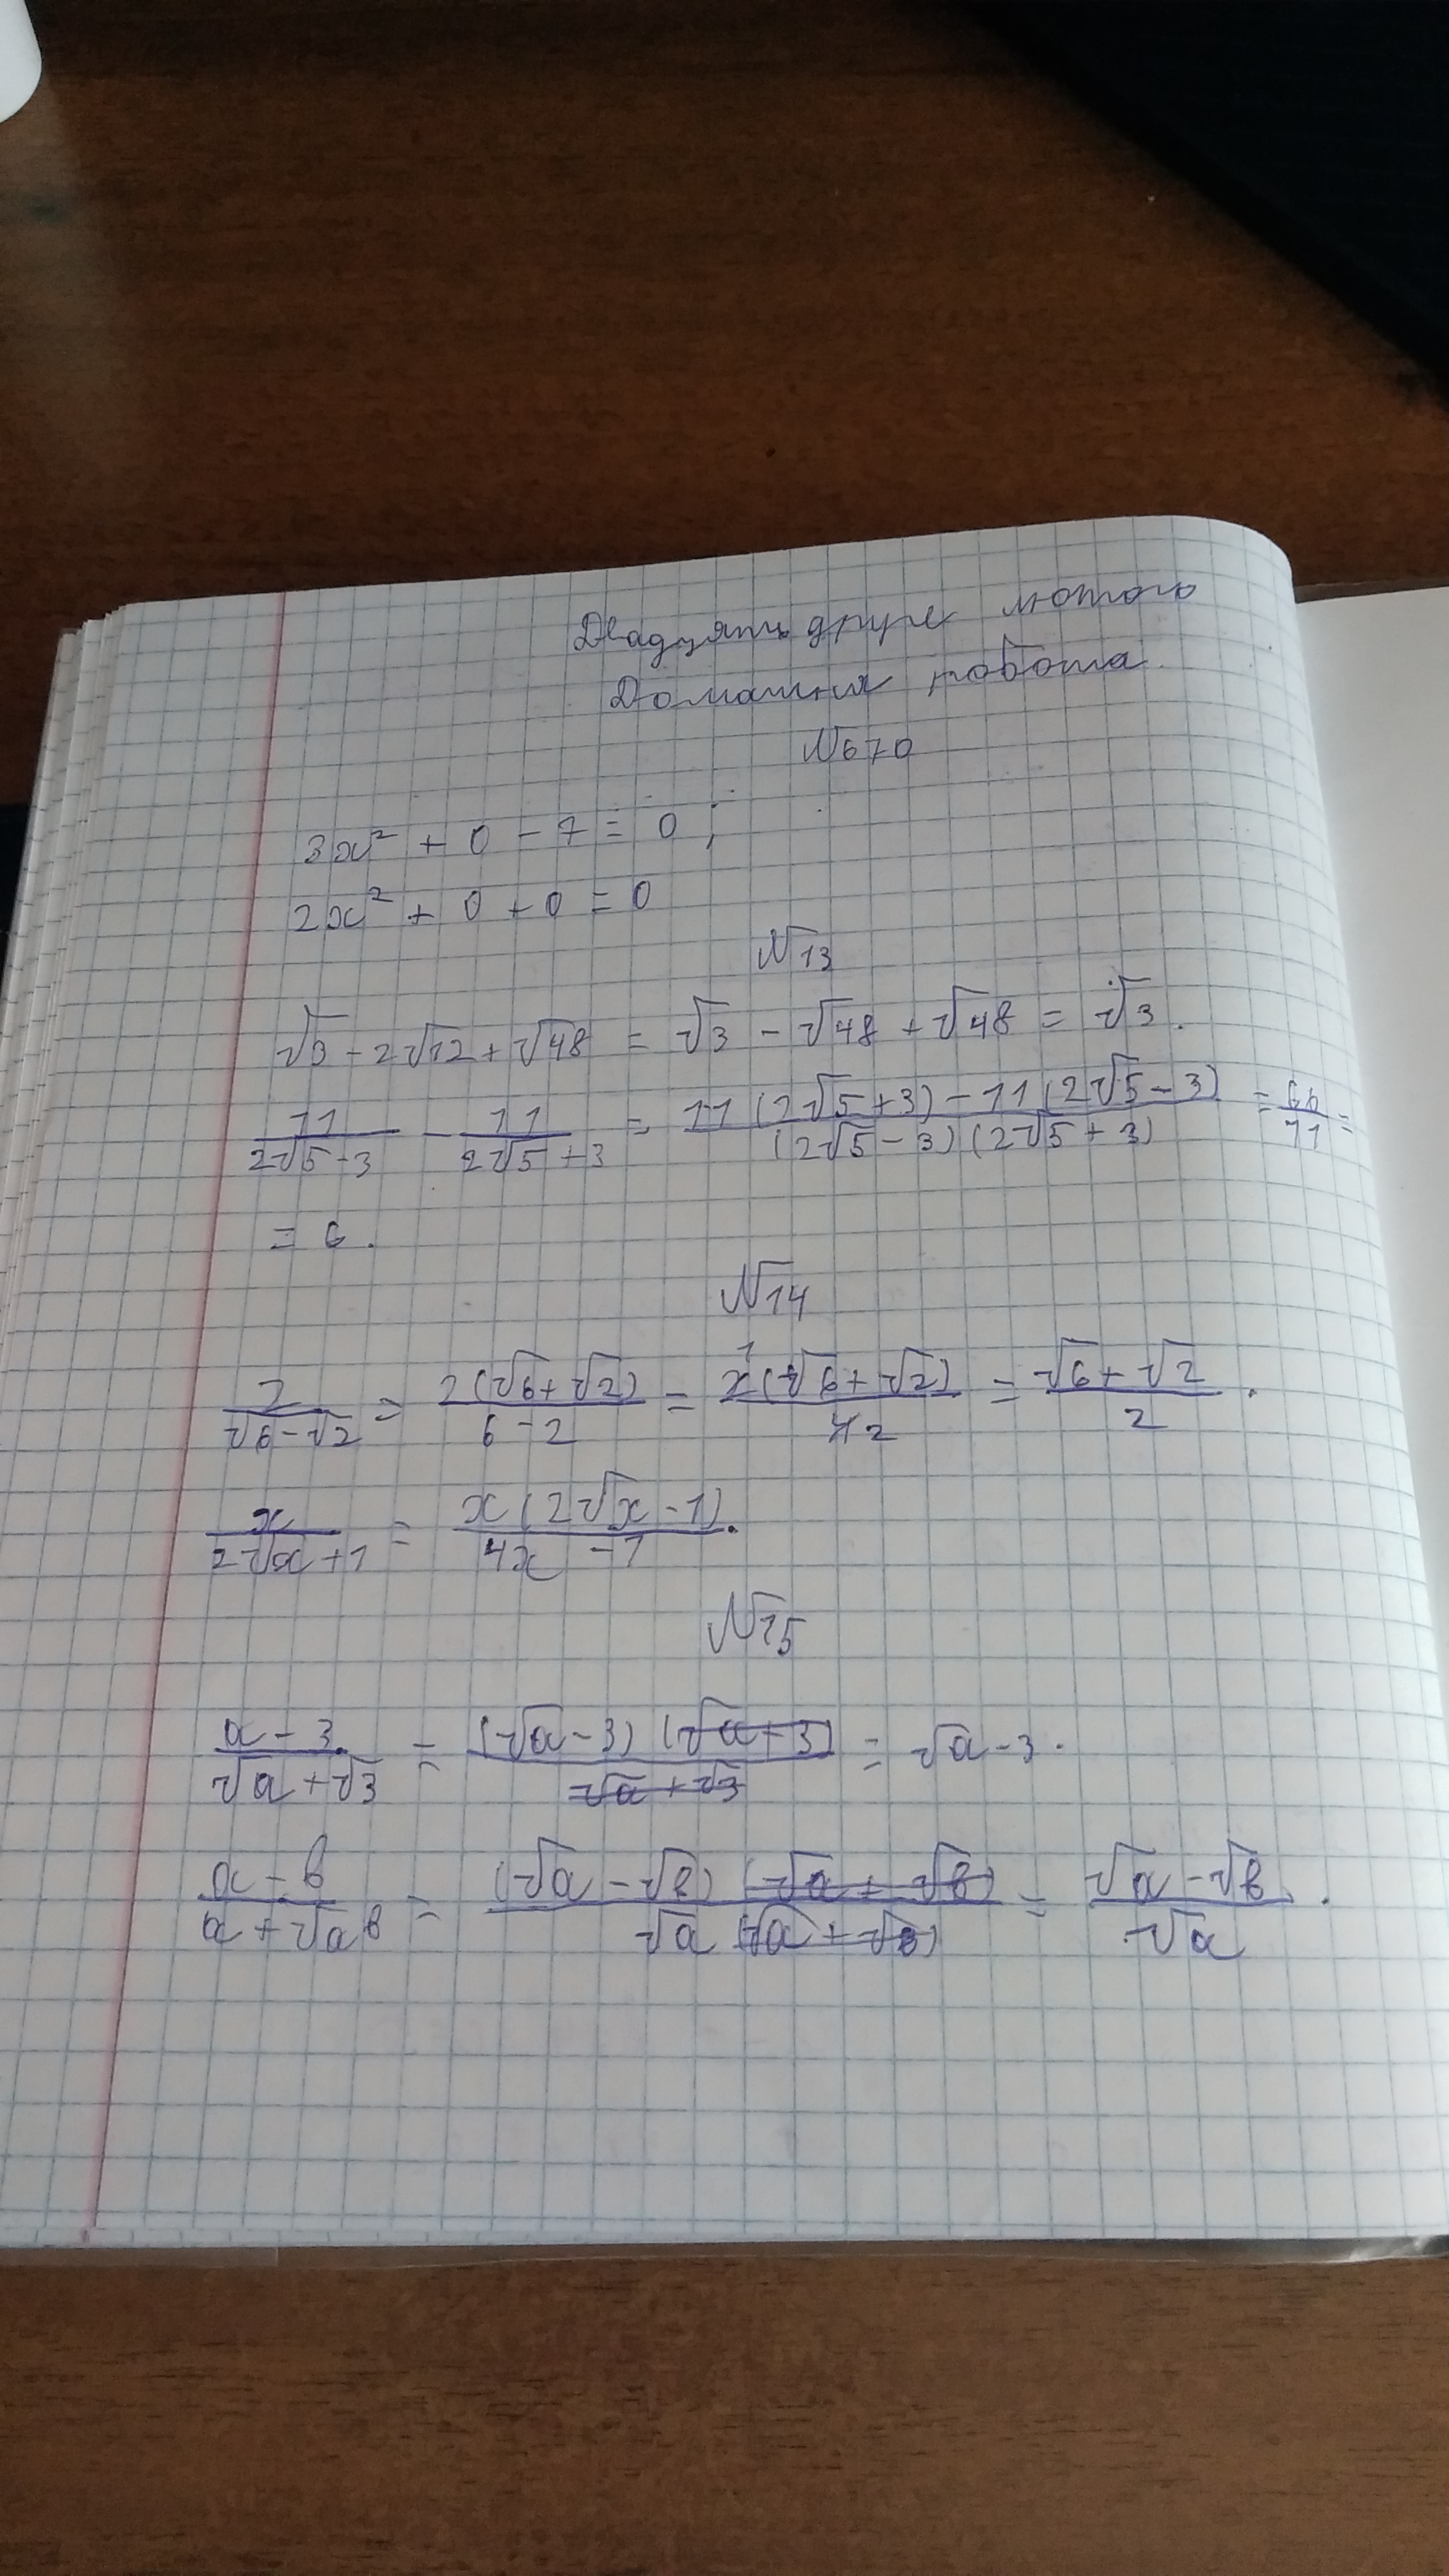 Двадцять друге лютого
Домашня робота
№670
3x² + 0 - 7 = 0;
2x² + 0 + 0 = 0
№13
√3 - 2√12 + √48 = √3 - √48 + √48 = √3.
11/(2√5-3) - 11/(2√5+3) = (11(2√5+3) - 11(2√5-3))/((2√5-3)(2√5+3)) = 66/11 =
= 6.
№14
2/(√6-√2) = 2(√6+√2)/(6-2) = 2(√6+√2)/4 1 2 = (√6+√2)/2.
x/(2√x+1) = x(2√x-1)/(4x-1).
№15
(a-3)/(√a+√3) = (√a-3)(√a+3)/(√a+√3) = √a-3.
(a-b)/(a+√ab) = (√a-√b)(√a+√b)/(√a(√a+√b)) = (√a-√b)/√a.